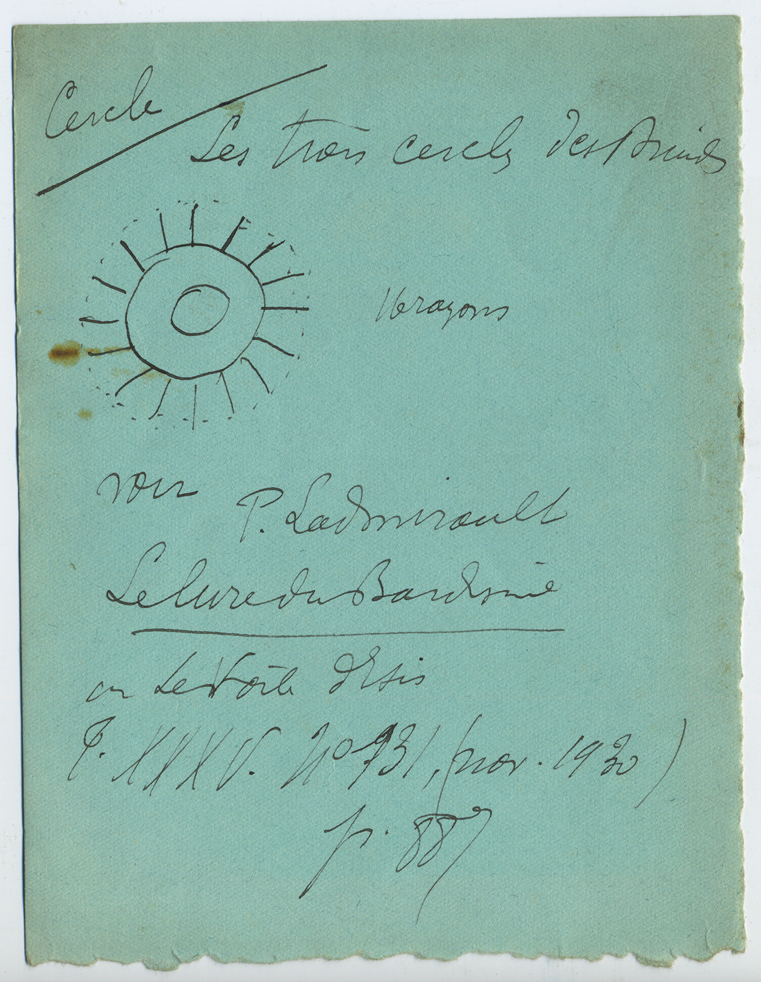 Cercle
Les trois cercles des Druides
16 rayons
voir P. Ladmirault
Le livre du Bardisme
in Le Voile d'Isis
T. XXXV. N° 131, (nov. 1930)
p. 887